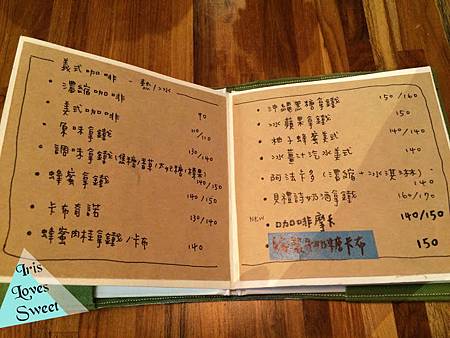 義式咖啡 - 熱/冰
• 濃縮咖啡 90
• 美式咖啡 110/110
• 原味拿鐵 130/140
• 調味拿鐵(焦糖/香草/太妃糖/榛果) 140/150
• 蜂蜜拿鐵 140/150
• 卡布奇諾 130/140
• 蜂蜜肉桂拿鐵/卡布 140
• 沖繩黑糖拿鐵 150/160
• 冰蘋果拿鐵 150
• 柚子蜂蜜美式 140/140
• 冰薑汁汽水美式 140
• 阿法卡多(濃縮+冰淇淋) 140
• 貝禮詩奶酒拿鐵 160/170
NEW • 咖啡摩卡 140/150
• 糖卡布 150
Iris
Loves
Sweet